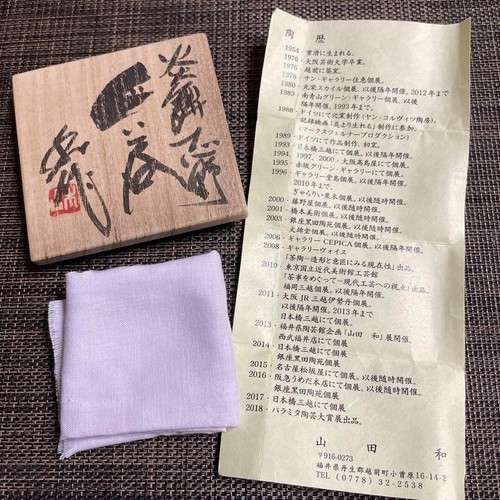 ぐい呑
陶　歴
1954・常滑に生まれる。
1976・大阪芸術大学卒業。
1976・越前に築窯。
1978・サン・ギャラリー住恵個展。
1980・丸栄スカイル個展。以後隔年開催。2012年まで
1983・南青山グリーン・ギャラリー個展。以後
隔年開催。1993年まで。
1988・ドイツにて穴窯制作(ヤン・コルヴィツ陶房)。
記録映画「炎より生れる」制作に参加。
(マークスフェルナープロダクション)
1989・ドイツにて作品制作、初窯。
1993・日本橋三越にて個展。以後隔年開催。
1994, 1997, 2000・大阪高島屋にて個展。
1995・赤坂グリーン・ギャラリーにて個展。
1996・ギャラリー堂島個展。以後隔年開催。
2010年まで。
ぎゃらりい栗本個展。以後随時開催。
2000・藤野屋個展。以後随時開催。
2001・橋本美術個展。以後随時開催。
2003・銀座黒田陶苑個展。以後随時開催。
文錦堂個展。以後随時開催。
2006・ギャラリー CEPICA 個展。以後隔年開催。
2008・ギャラリーヴォイス
「茶陶―造形と意匠にみる現在性」出品。
2010・東京国立近代美術館工芸館
「茶事をめぐって―現代工芸への視点」出品。
福岡三越個展。以後隔年開催。
2011・大阪 JR 三越伊勢丹個展。
以後隔年開催。2013年まで
日本橋三越にて個展。
2013・福井県陶芸館企画「山田　和」展開催。
西武福井店にて個展
2014・日本橋三越にて個展。
銀座黒田陶苑個展
2015・名古屋松坂屋にて個展。以後随時開催。
2016・阪急うめだ本店にて個展。以後随時開催。
銀座黒田陶苑個展。
2017・日本橋三越にて個展。
2018・パラミタ陶芸大賞展出品。
山　田　和
〒916-0273
福井県丹生郡越前町小曽原16-14-2
TEL (0778) 32-2538